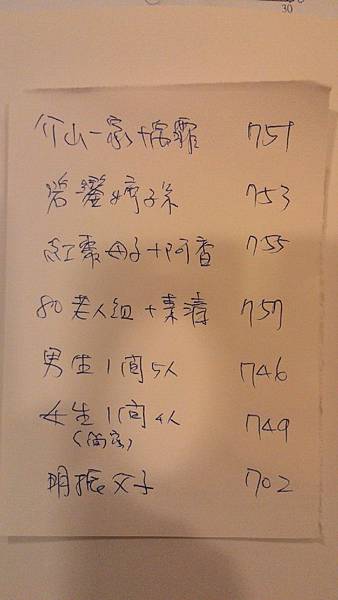 30
介山一家+宗霖 751
碧鑾婷子 753
紅棗母子+阿香 755
80老人組+秉濤 757
男生1間5人 746
女生1間4人 749
明振父子 702